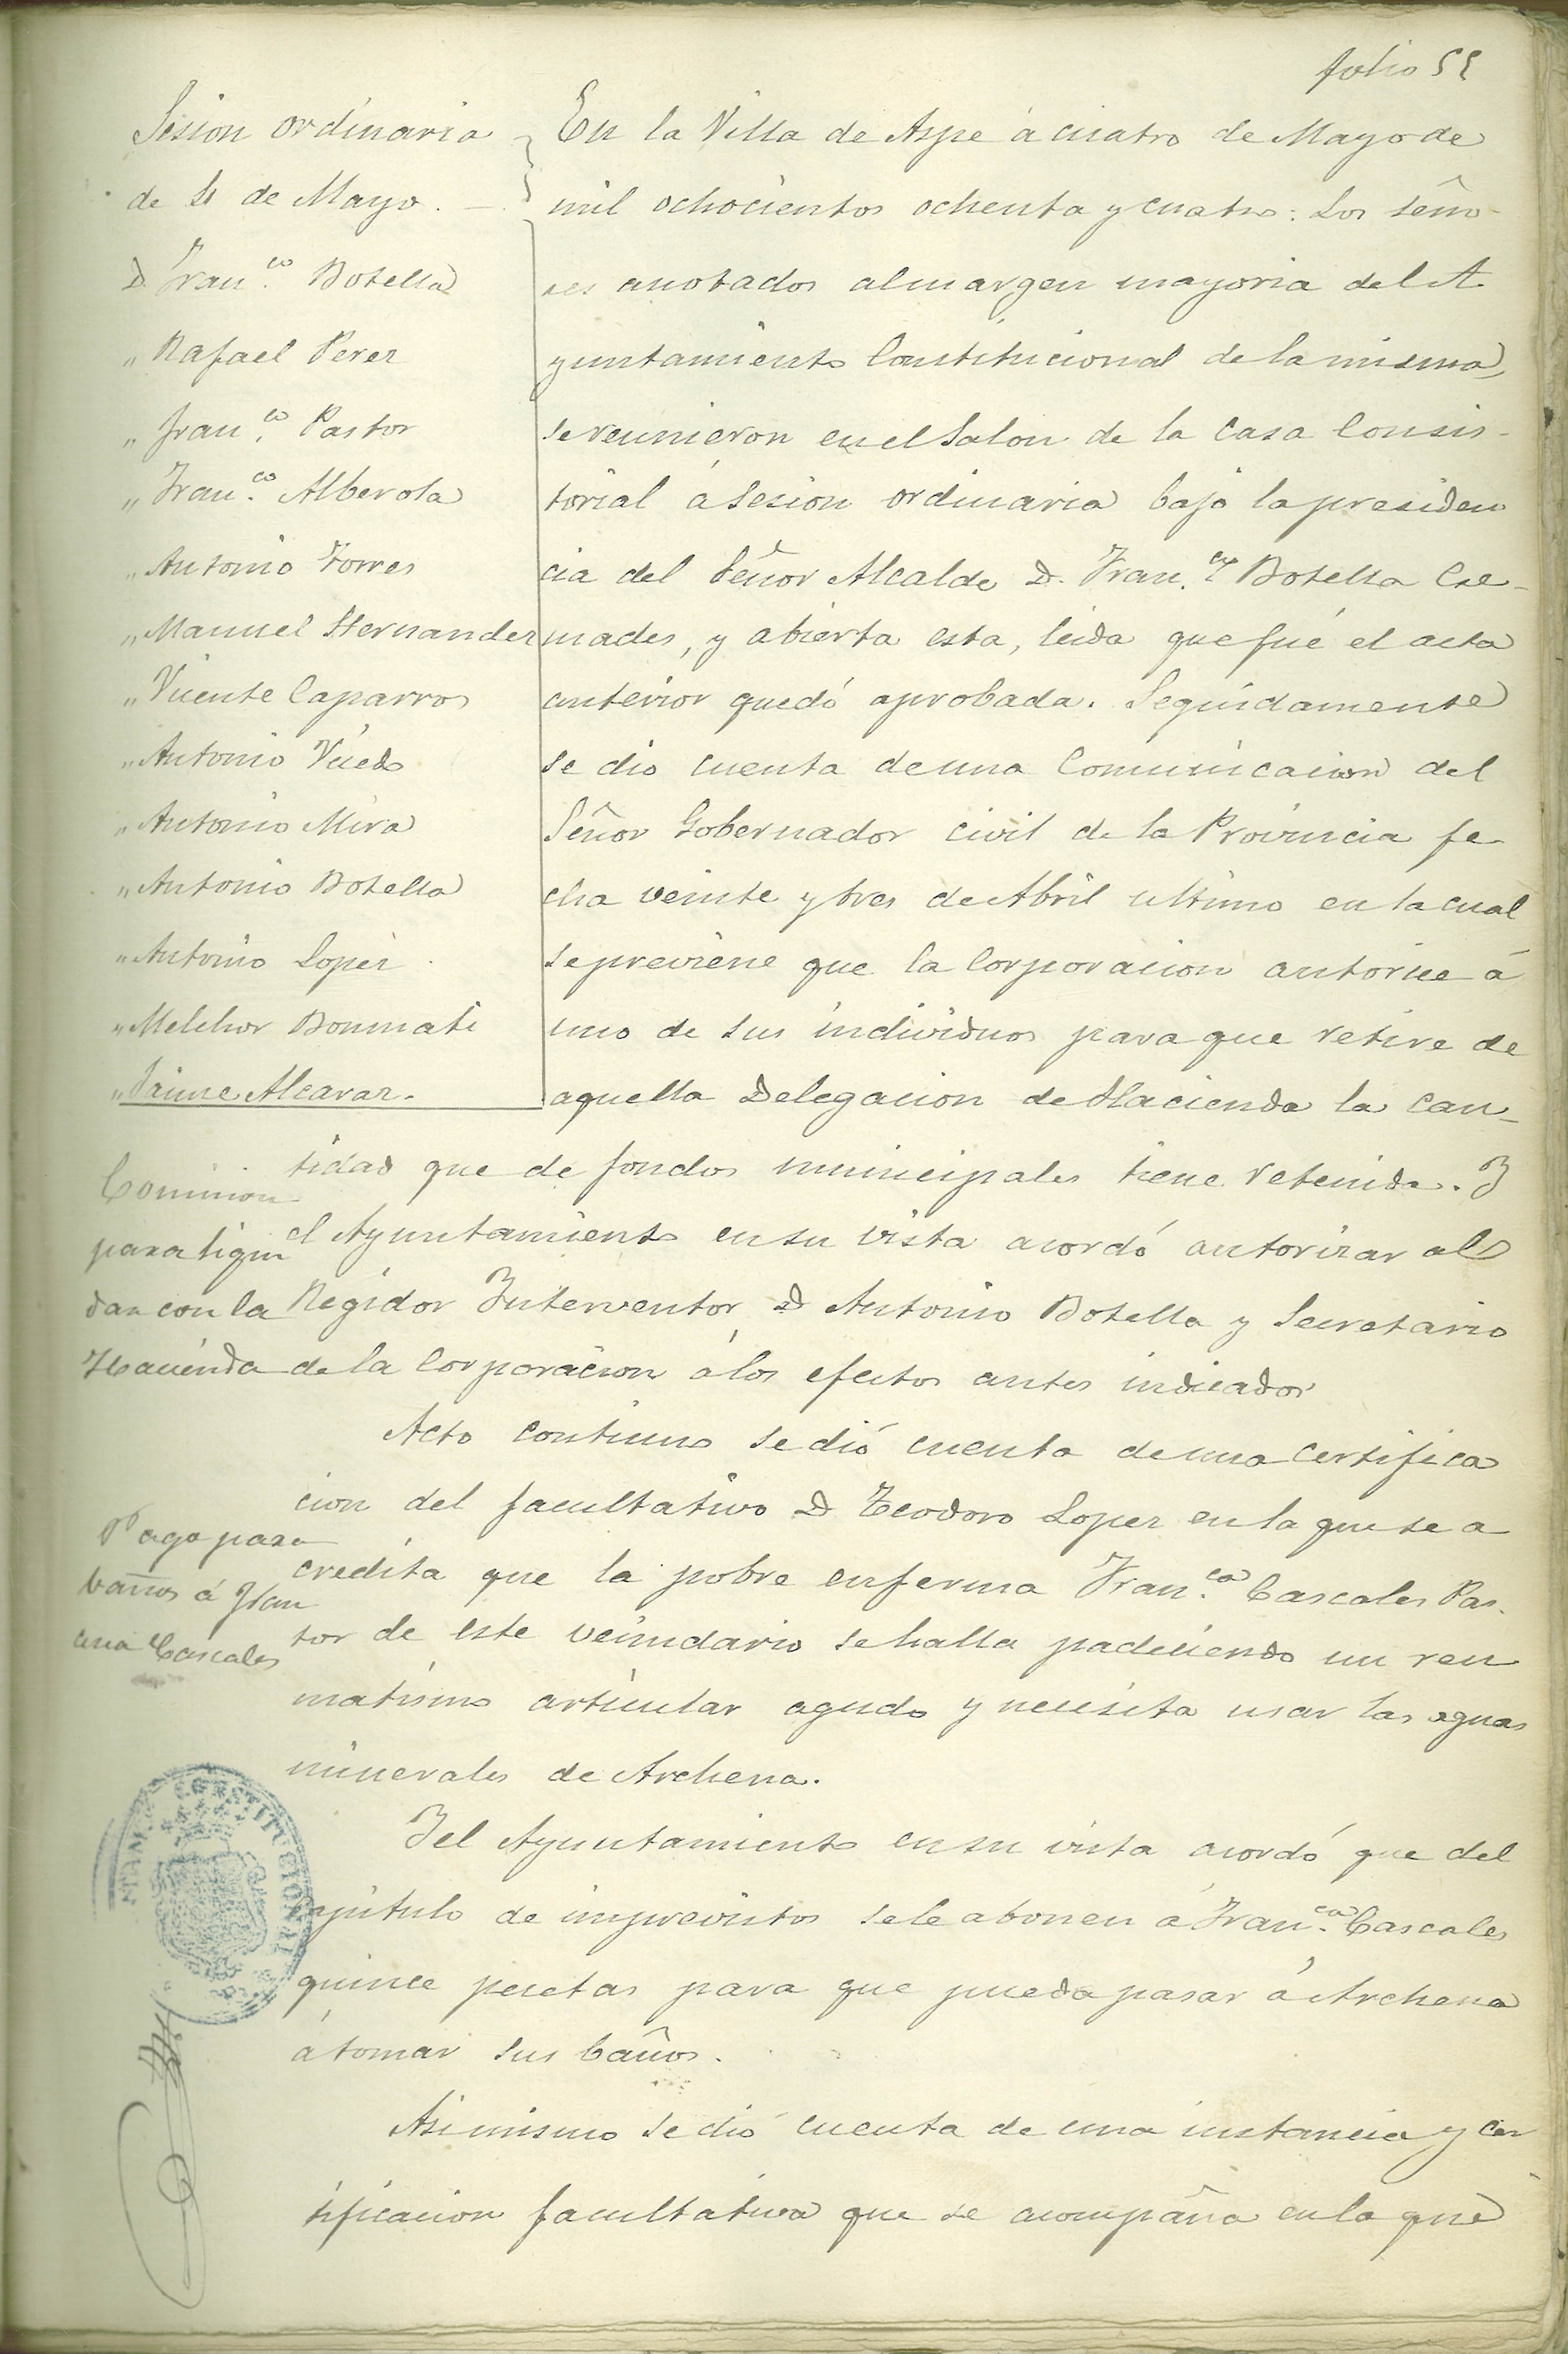 folio 55
Sesion ordinaria
de 4 de Mayo. —
D. Fran.co Botella
" Rafael Perez
" Fran.co Pastor
" Fran.co Alberola
" Antonio Torres
" Manuel Hernandez
" Vicente Caparros
" Antonio Vicedo
" Antonio Mira
" Antonio Botella
" Antonio Lopez
" Melchor Bonmati
" Jaime Alcaraz.
En la Villa de Aspe á cuatro de Mayo de
mil ochocientos ochenta y cuatro: Los seño-
res anotados al margen mayoria del A-
yuntamiento Constitucional de la misma,
se reunieron en el Salon de la Casa Consis-
torial á Sesion ordinaria bajo la presiden
cia del Señor Alcalde D. Fran.co Botella Cre-
mades, y abierta esta, leida que fué el acta
anterior quedó aprobada. Seguidamente
se dio cuenta de una Comunicacion del
Señor Gobernador civil de la Provincia fe-
cha veinte y tres de Abril ultimo en la cual
se previene que la Corporacion autorice á
uno de sus individuos para que retire de
aquella Delegacion de Hacienda la can-
tidad que de fondos municipales tiene retenida. Y
el Ayuntamiento en su vista acordó autorizar al
Regidor Interventor D Antonio Botella y Secretario
de la Corporacion á los efectos antes indicados
Comision
para liqui
dar con la
Hacienda
Acto continuo se dió cuenta de una certifica
cion del facultativo D Teodoro Lopez en la que se a
credita que la pobre enferma Fran.ca Cascales Pas-
tor de este vecindario se halla padeciendo un reu
matismo articular agudo y necesita usar las aguas
minerales de Archena.
Pago para
baños á Fran
cisca Cascales
Y el Ayuntamiento en su vista acordó que del
capitulo de imprevistos se le abonen á Fran.ca Cascales
quince pesetas para que pueda pasar á Archena
á tomar sus baños.
Asimismo se dió cuenta de una instancia y cer
tificacion facultativa que se acompaña en la que
CONSTITUCIONAL